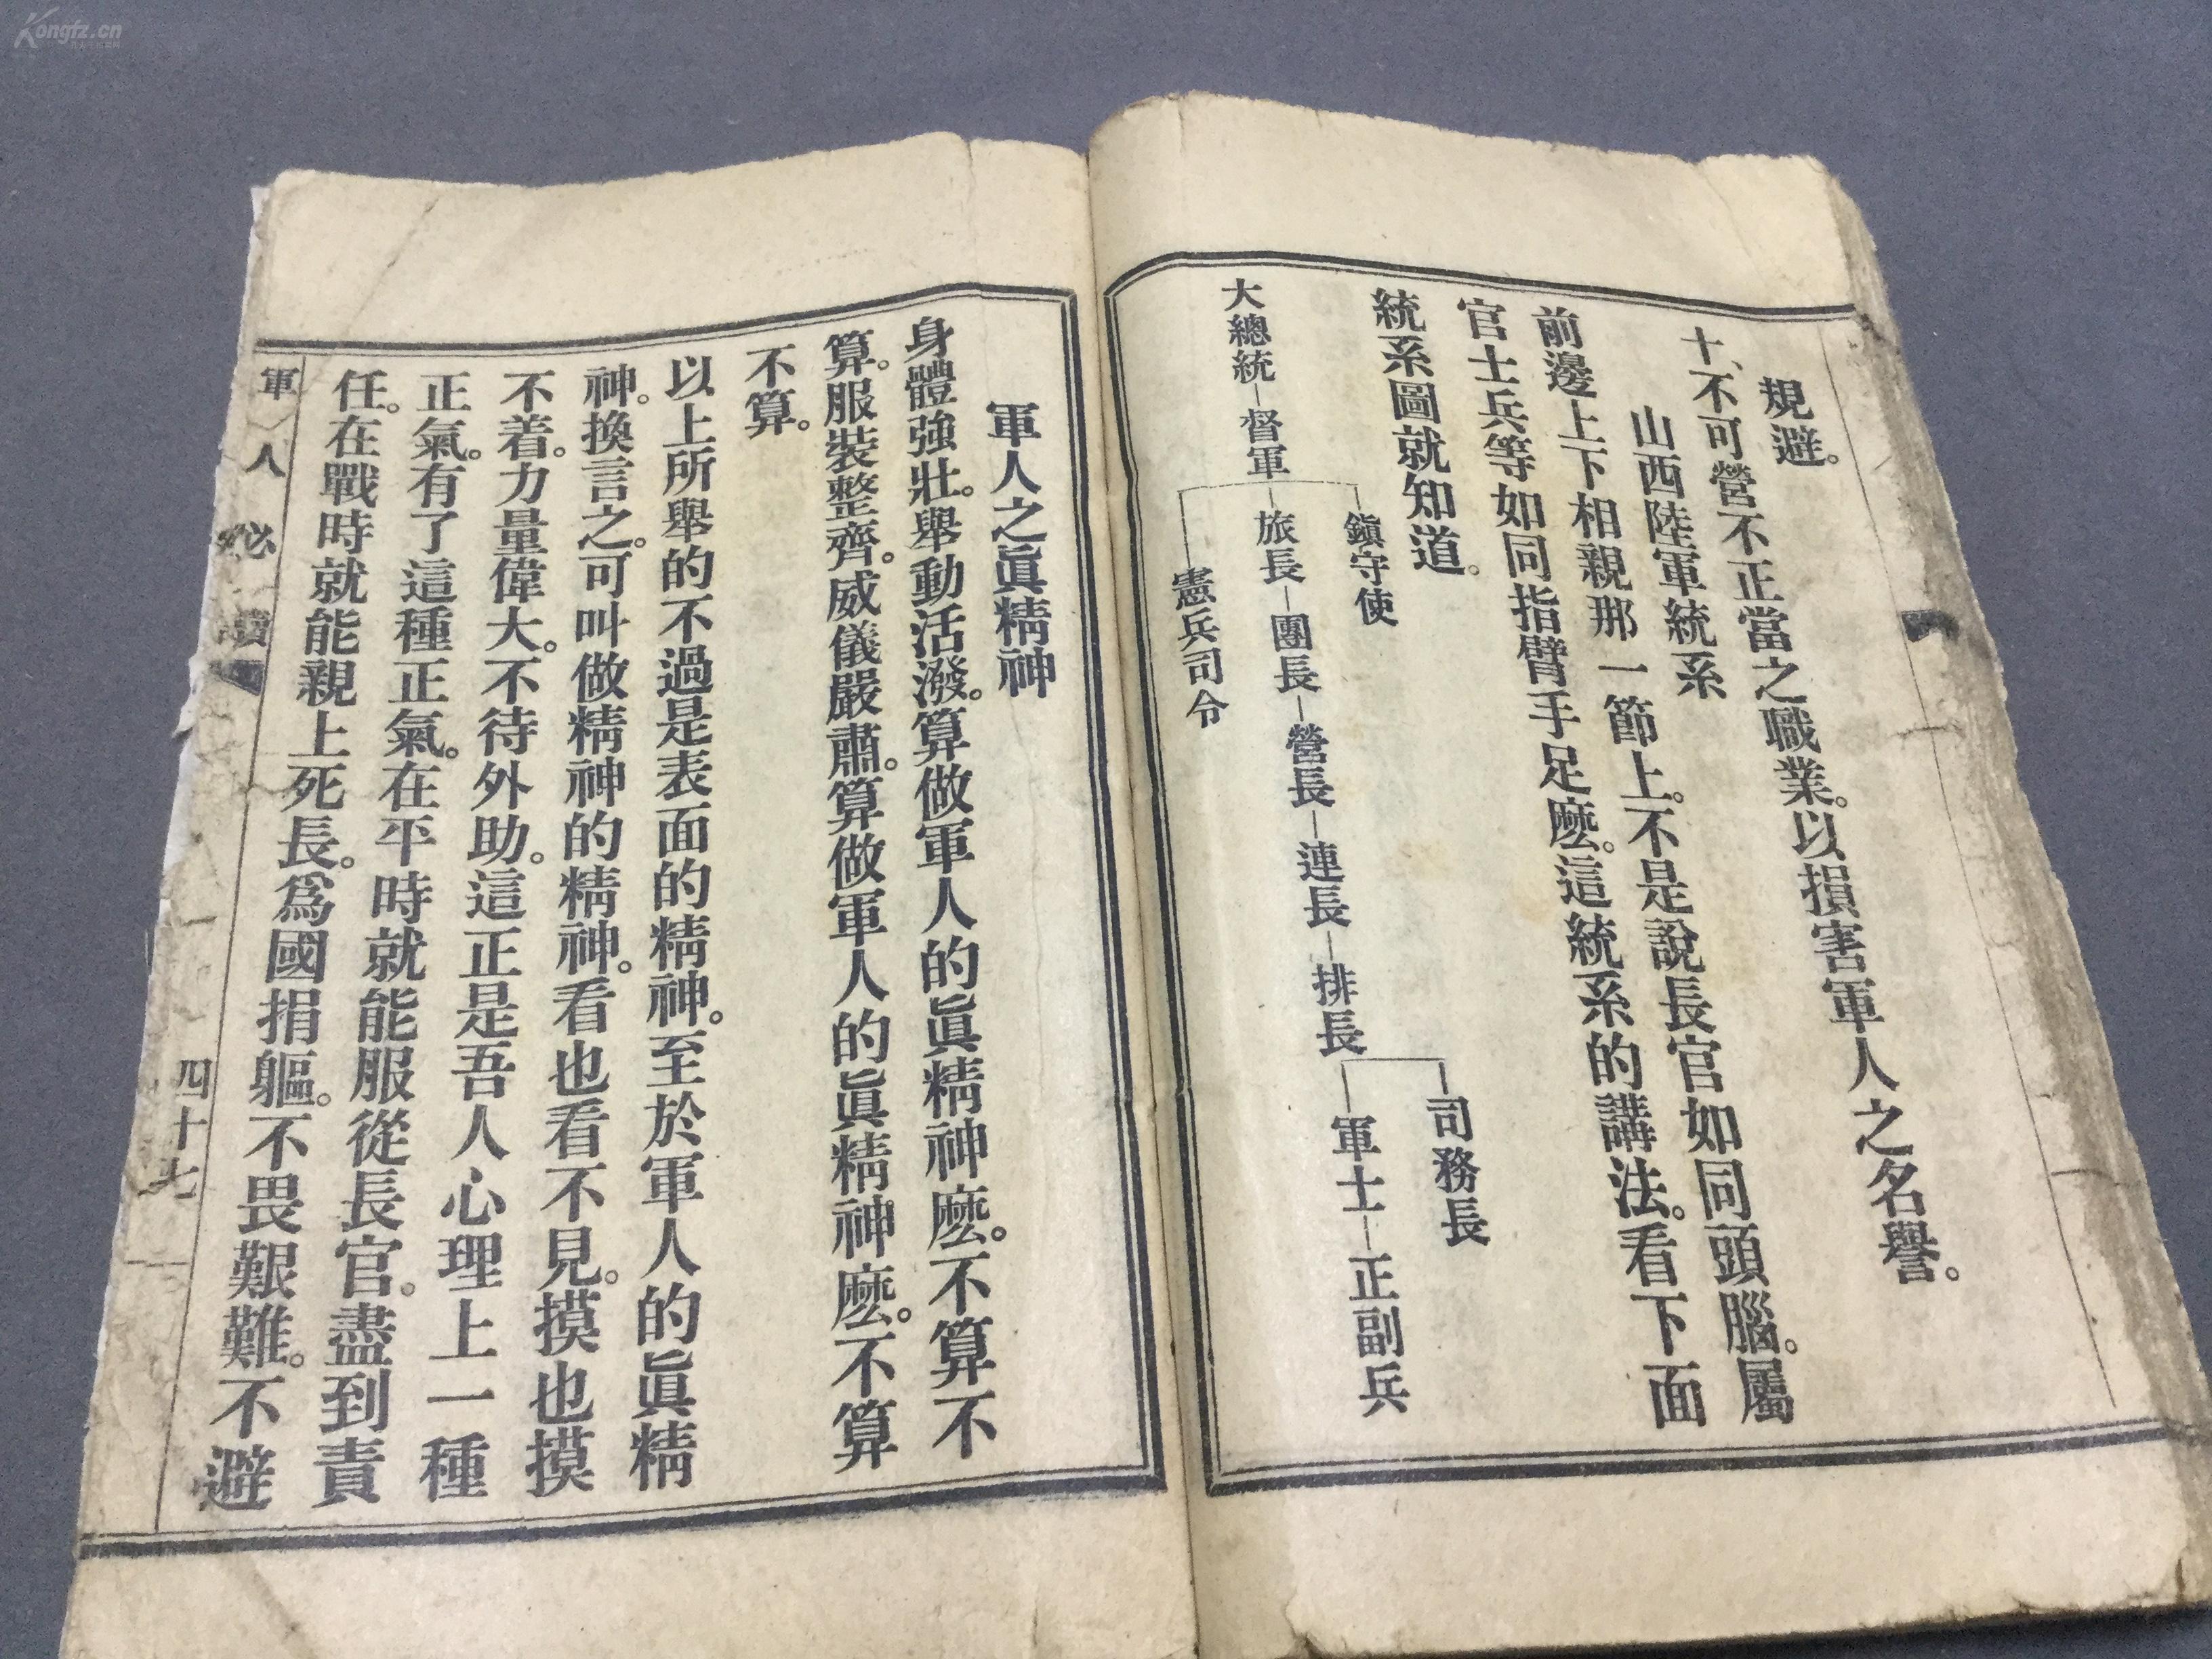 規避。
十、不可營不正當之職業。以損害軍人之名譽。
山西陸軍統系
前邊上下相親那一節上。不是說長官如同頭腦。屬
官士兵等如同指臂手足麽。這統系的講法。看下面
統系圖就知道。
鎮守使
司務長
大總統－督軍－旅長－團長－營長－連長－排長－軍士－正副兵
憲兵司令
軍人之眞精神
身體強壯。舉動活潑。算做軍人的眞精神麽。不算不
算。服裝整齊。威儀嚴肅。算做軍人的眞精神麽。不算
不算。
以上所舉的不過是表面的精神。至於軍人的眞精
神。換言之。可叫做精神的精神。看也看不見。摸也摸
不着。力量偉大。不待外助。這正是吾人心理上一種
正氣。有了這種正氣。在平時就能服從長官。盡到責
任。在戰時就能親上死長。爲國捐軀。不畏艱難。不避
軍人必讀
四十七
Kongfz.cn